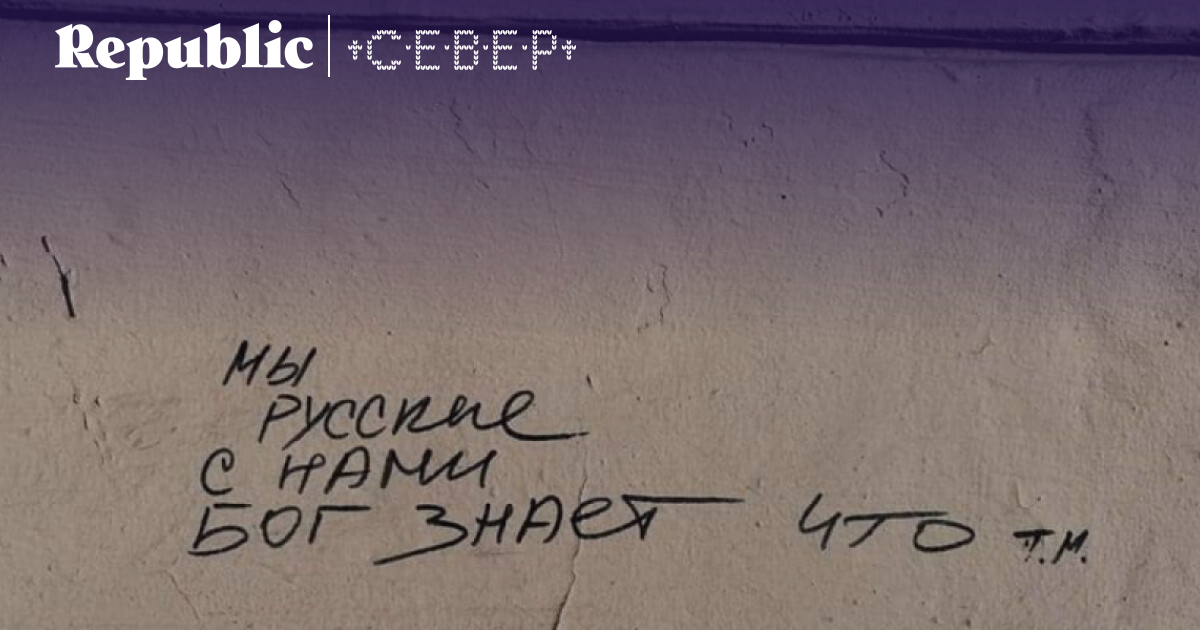 Republic | СЕВЕР
мы
русские
с нами
Бог знает что т.м.